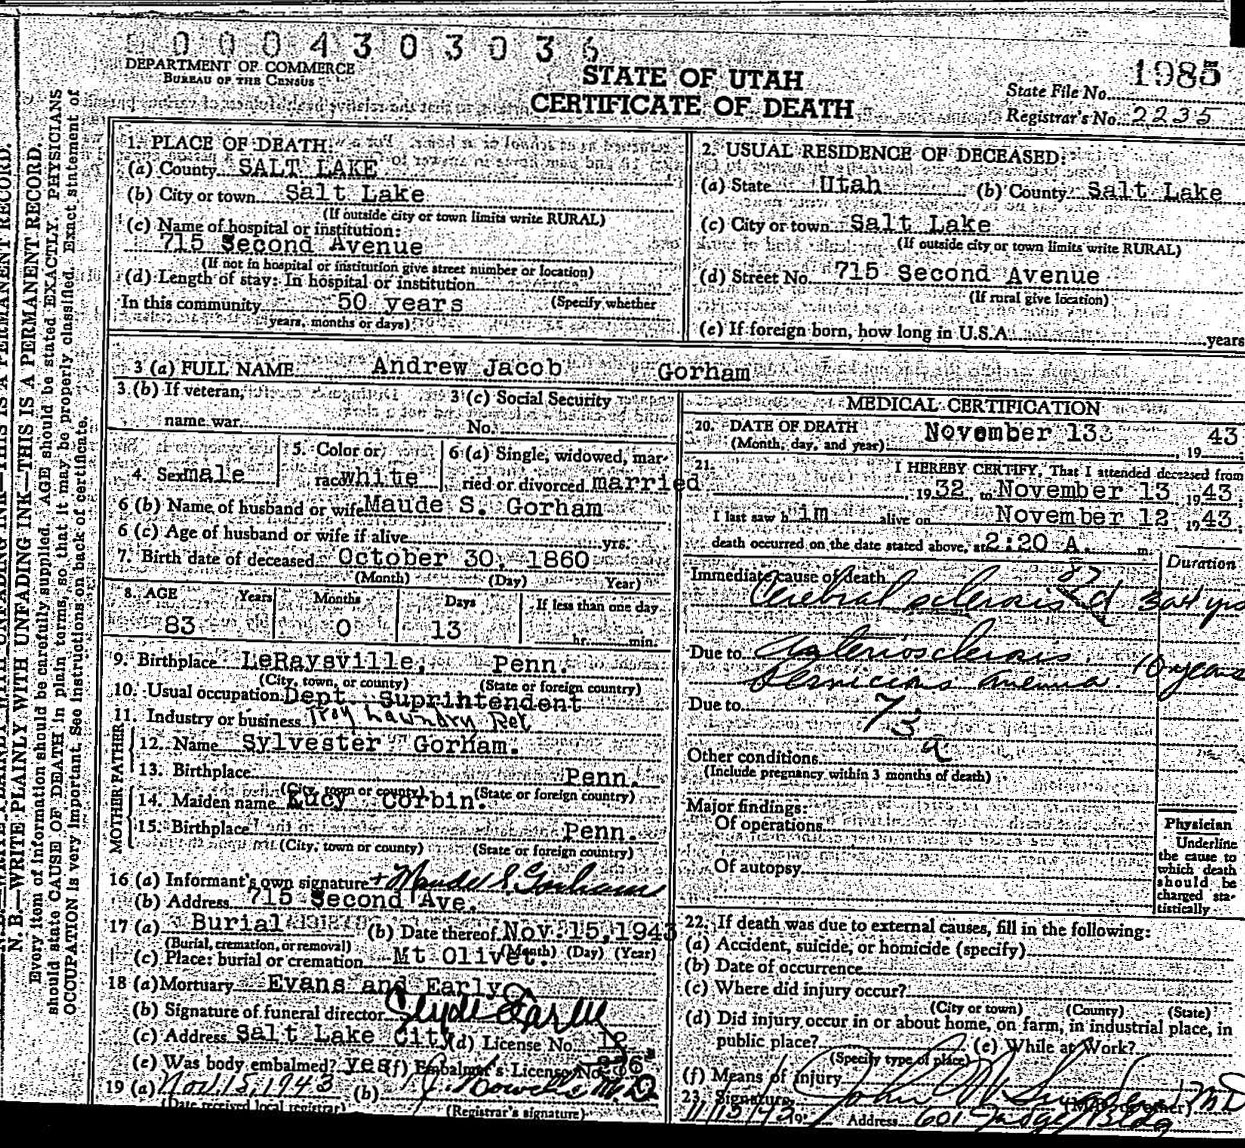 00004303036
DEPARTMENT OF COMMERCE
BUREAU OF THE CENSUS
STATE OF UTAH
CERTIFICATE OF DEATH
State File No. 1985
Registrar's No. 2235
N. B.—WRITE PLAINLY WITH UNFADING INK—THIS IS A PERMANENT RECORD.
Every item of information should be carefully supplied. AGE should be stated EXACTLY. PHYSICIANS
should state CAUSE OF DEATH in plain terms, so that it may be properly classified. Exact statement of
OCCUPATION is very important. See instructions on back of certificate.
1. PLACE OF DEATH:
(a) County SALT LAKE
(b) City or town Salt Lake
(If outside city or town limits write RURAL)
(c) Name of hospital or institution:
715 Second Avenue
(If not in hospital or institution give street number or location)
(d) Length of stay: In hospital or institution
In this community 50 years (Specify whether
years, months or days)
2. USUAL RESIDENCE OF DECEASED:
(a) State Utah (b) County Salt Lake
(c) City or town Salt Lake
(If outside city or town limits write RURAL)
(d) Street No. 715 Second Avenue
(If rural give location)
(e) If foreign born, how long in U.S.A. years
3 (a) FULL NAME Andrew Jacob Gorham
3. (b) If veteran, 3 (c) Social Security
name war No.
4. Sex male
5. Color or
race white
6 (a) Single, widowed, mar-
ried or divorced married
6 (b) Name of husband or wife Maude S. Gorham
6 (c) Age of husband or wife if alive yrs.
7. Birth date of deceased October 30, 1860
(Month) (Day) Year)
8. AGE Years Months Days If less than one day
83 0 13 hr. min.
9. Birthplace LeRaysville, Penn.
(City, town, or county) (State or foreign country)
10. Usual occupation Dept Suprintendent
11. Industry or business Troy Laundry Ret
FATHER
12. Name Sylvester Gorham.
13. Birthplace Penn.
(City, town or county) (State or foreign country)
MOTHER
14. Maiden name Lucy Corbin.
15. Birthplace Penn.
(City, town or county) (State or foreign country)
16 (a) Informant's own signature + Maude S. Gorham
(b) Address 715 Second Ave.
17 (a) Burial (b) Date thereof Nov. 15, 1943
(Burial, cremation, or removal) (Month) (Day) (Year)
(c) Place: burial or cremation Mt Olivet.
18 (a) Mortuary Evans and Early
(b) Signature of funeral director Clyde Early
(c) Address Salt Lake City (d) License No. 12
(e) Was body embalmed? yes (f) Embalmer's License No.
19 (a) Nov. 15, 1943 (b) M.D.
(Date received local registrar) (Registrar's signature)
MEDICAL CERTIFICATION
20. DATE OF DEATH November 13 1943
(Month, day, and year)
21. I HEREBY CERTIFY, That I attended deceased from
1932, to November 13 1943.
I last saw him alive on November 12, 1943.
death occurred on the date stated above, at 2:20 A. m.
Duration
Immediate cause of death
Cerebral sclerosis 3 or 4 yrs
Due to Arteriosclerosis 10 years
Pernicious anemia
Due to
73 a
Other conditions
(Include pregnancy within 3 months of death)
Major findings:
Of operations
Of autopsy
Physician
Underline
the cause to
which death
should be
charged sta-
tistically
22. If death was due to external causes, fill in the following:
(a) Accident, suicide, or homicide (specify)
(b) Date of occurrence
(c) Where did injury occur?
(City or town) (County) (State)
(d) Did injury occur in or about home, on farm, in industrial place, in
public place? (e) While at Work?
(Specify type of place)
(f) Means of Injury
23. Signature John MD
Address 601 Judge Bldg